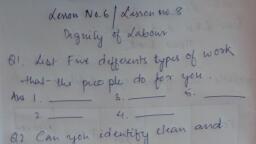 Lesson No.6 / Lesson no.8
Dignity of Labour
Q1. List Five differents types of work
that the people do for you.
Ans 1. ____ 3. ____ 5. ____
2. ____ 4. ____
Q2 Can you identify clean and